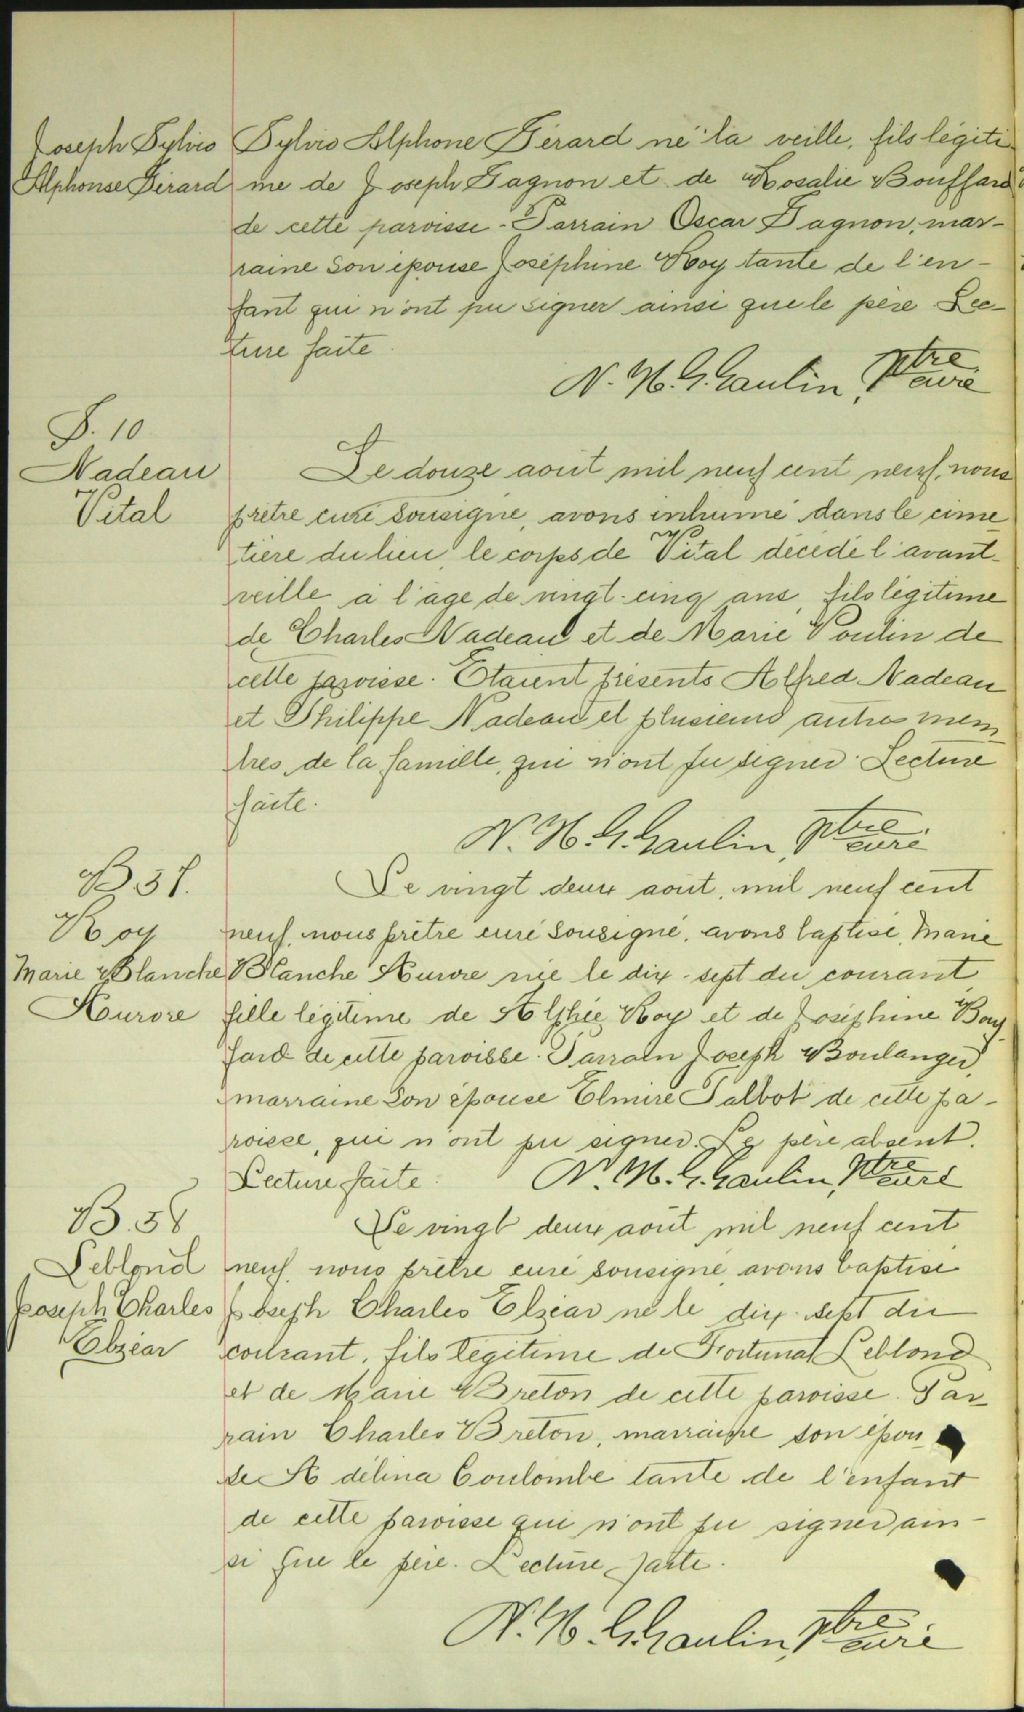 Joseph Sylvio
Alphonse Gérard
Sylvio Alphone Gérard né la veille, fils légiti-
me de Joseph Gagnon et de Rosalie Bouffard
de cette paroisse. Parrain Oscar Gagnon, mar-
raine son épouse Joséphine Roy tante de l'en-
fant qui n'ont pu signer ainsi que le père Lec-
ture faite.
N. H. G. Gaulin, Ptre
curé
S. 10
Nadeau
Vital
Le douze août mil neuf cent neuf, nous
prêtre curé sousigné, avons inhumé dans le cime-
tière du lieu, le corps de Vital décédé l'avant-
veille à l'âge de vingt-cinq ans, fils légitime
de Charles Nadeau et de Marie Poulin de
cette paroisse. Etaient présents Alfred Nadeau
et Philippe Nadeau et plusieurs autres mem-
bres de la famille, qui n'ont pu signer. Lecture
faite.
N. H. G. Gaulin, Ptre
curé
B 37.
Roy
Marie Blanche
Aurore
Le vingt deux août, mil neuf cent
neuf, nous prêtre curé sousigné, avons baptisé, Marie
Blanche Aurore née le dix-sept du courant
fille légitime de Alphée Roy et de Joséphine Bouf-
fard de cette paroisse. Parrain Joseph Boulanger,
marraine son épouse Elmire Talbot de cette pa-
roisse, qui n'ont pu signer. Le père absent.
Lecture faite. N. H. G. Gaulin, Ptre
curé
B. 38
Leblond
Joseph Charles
Elzéar
Le vingt deux août mil neuf cent
neuf, nous prêtre curé sousigné, avons baptisé
Joseph Charles Elzéar né le dix-sept du
courant, fils légitime de Fortunat Leblond
et de Marie Breton de cette paroisse. Par-
rain Charles Breton, marraine son épou-
se Adélina Coulombe tante de l'enfant
de cette paroisse qui n'ont pu signer ain-
si que le père. Lecture faite.
N. H. G. Gaulin, Ptre
curé